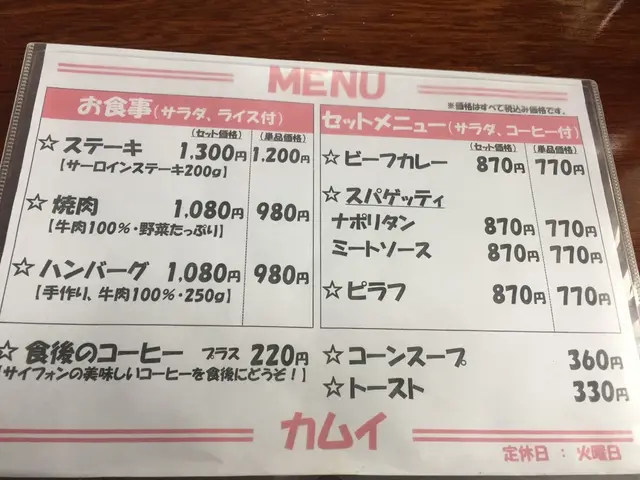 MENU
※価格はすべて税込み価格です。
お食事(サラダ、ライス付)
(セット価格) (単品価格)
☆ ステーキ 1,300円 1,200円
【サーロインステーキ200g】
☆ 焼肉 1,080円 980円
【牛肉100%・野菜たっぷり】
☆ ハンバーグ 1,080円 980円
【手作り、牛肉100%・250g】
☆ 食後のコーヒー プラス 220円
【サイフォンの美味しいコーヒーを食後にどうぞ!】
セットメニュー(サラダ、コーヒー付)
(セット価格) (単品価格)
☆ ビーフカレー 870円 770円
☆ スパゲッティ
ナポリタン 870円 770円
ミートソース 870円 770円
☆ ピラフ 870円 770円
☆ コーンスープ 360円
☆ トースト 330円
カムイ
定休日 : 火曜日